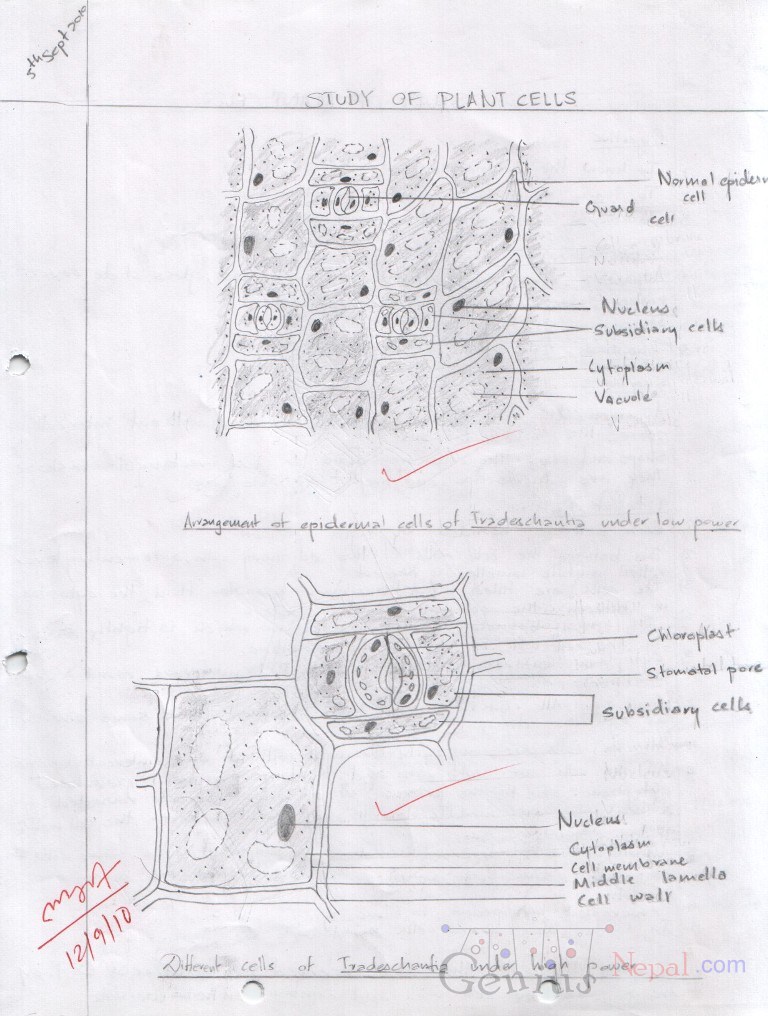 5th Sept 2010
STUDY OF PLANT CELLS
Normal epiderm
cell
Guard
cell
Nucleus
Subsidiary cells
Cytoplasm
Vacuole
V
Arrangement of epidermal cells of Tradeschantia under low power
Chloroplast
Stomatal pore
Subsidiary cells
Nucleus
Cytoplasm
Cell membrane
Middle lamella
Cell wall
12/9/10
Different cells of Tradeschantia under high power
Genius Nepal.com